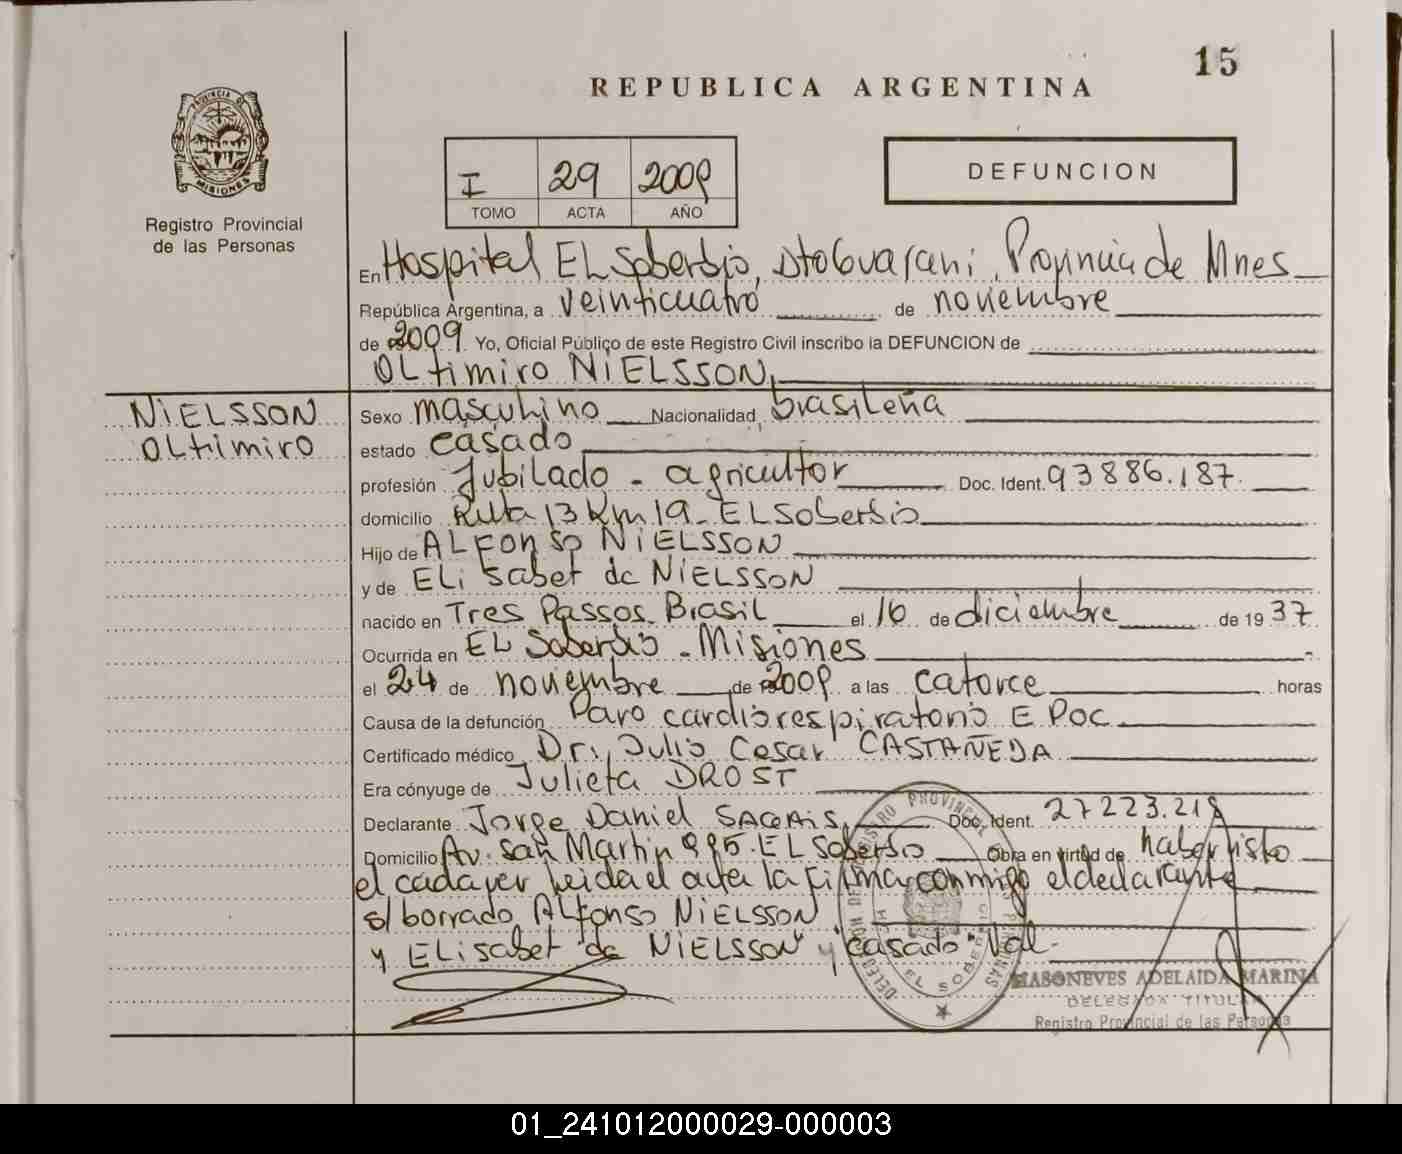 15
REPUBLICA ARGENTINA
PROVINCIA DE
MISIONES
Registro Provincial
de las Personas
I 29 2009
TOMO ACTA AÑO
DEFUNCION
En Hospital EL Soberbio, Dto Guarani, Provincia de Mnes
República Argentina, a veinticuatro de noviembre
de 2009 Yo, Oficial Público de este Registro Civil inscribo la DEFUNCION de
OLtimiro NIELSSON,
NIELSSON
OLtimiro
Sexo masculino Nacionalidad brasileña
estado casado
profesión Jubilado - agricultor Doc. Ident. 93886.187.
domicilio Ruta 13 Km 19 - EL Soberbio
Hijo de ALFONSO NIELSSON
y de ELisabet de NIELSSON
nacido en Tres Passos - Brasil el 16 de diciembre de 1937
Ocurrida en EL Soberbio - Misiones
el 24 de noviembre de 2009 a las catorce horas
Causa de la defunción Paro cardiorespiratorio EPOC
Certificado médico Dr. Julio Cesar CASTAÑEDA
Era cónyuge de Julieta DROST
Declarante Jorge Daniel Doc. Ident. 27223.218
Domicilio Av. San Martin 995 - EL Soberbio Obra en virtud de haber visto
el cadaver leida el acta la firma conmigo el declarante
s/borrado ALfonso NIELSSON
y ELisabet de NIELSSON y "casado" Val.
MASONEVES ADELAIDA MARINA
DELEGADA TITULAR
Registro Provincial de las Personas
01_241012000029-000003